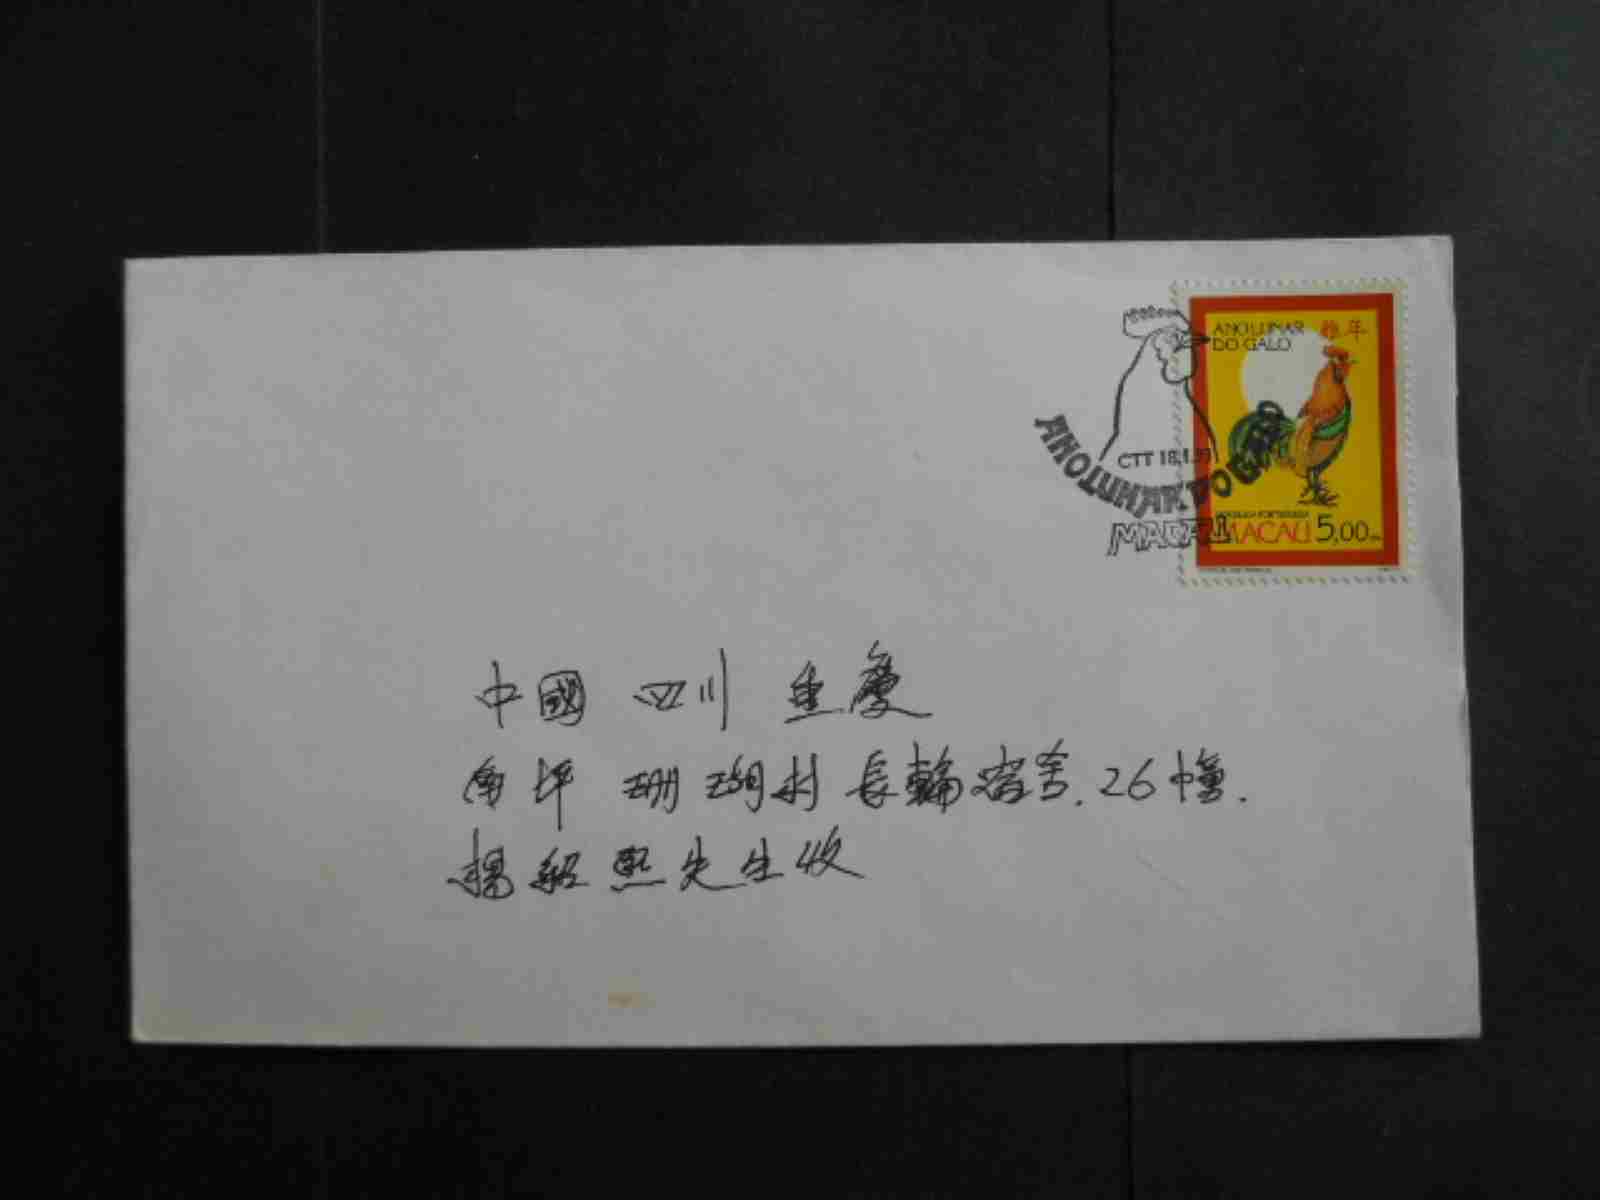 ANO LUNAR 雞年
DO GALO
CTT 18.1.93
ANO LUNAR DO GALO
MACAU
REPÚBLICA PORTUGUESA
MACAU 5,00
中國 四川 重慶
南坪 珊瑚村 長輪宿舍.26幢.
楊紹熙先生收